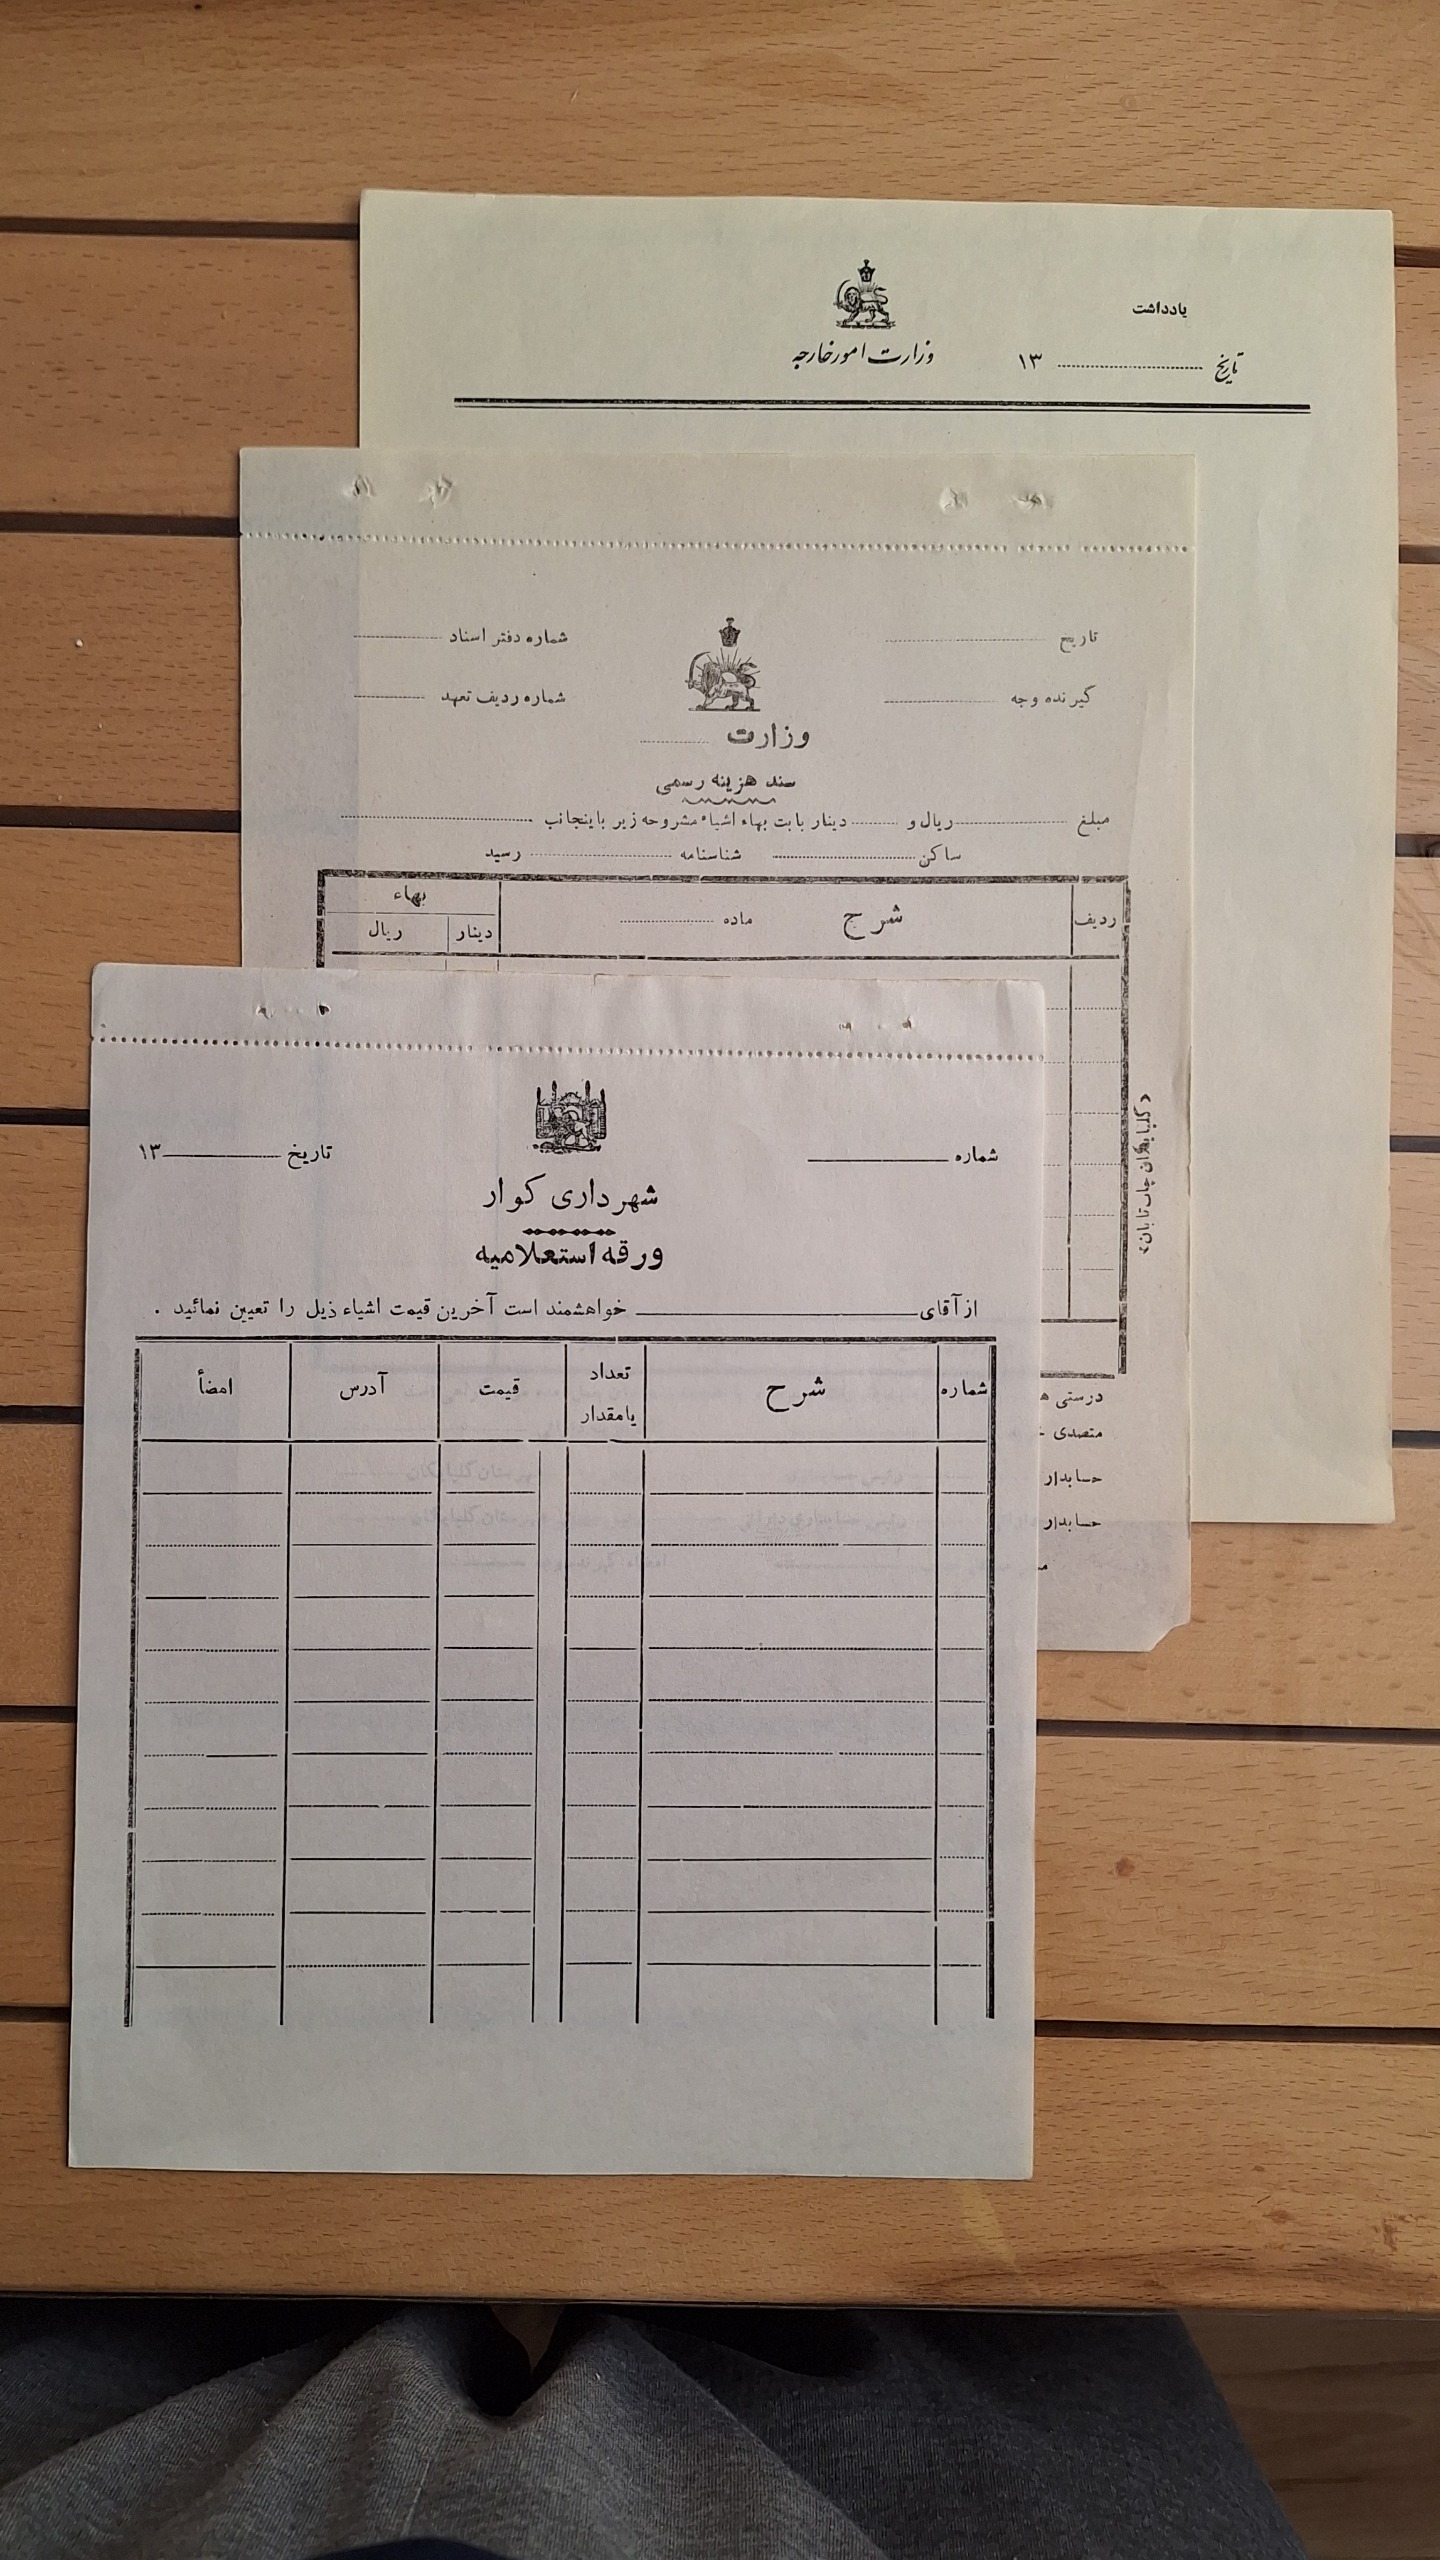 یادداشت
تاریخ ۱۳
وزارت امورخارجه
تاریخ
شماره دفتر اسناد
گیرنده وجه
شماره ردیف تعهد
وزارت
سند هزینه رسمی
مبلغ ریال و دینار بابت بهاء اشیاء مشروحه زیر باینجانب
ساکن شناسنامه رسید
ردیف شرح ماده بهاء
دینار ریال
گلپایگان چاپ تابان
درستی ه
متصدی
حسابدار
حسابدار
شماره
تاریخ ۱۳
شهرداری کوار
ورقه استعلامیه
از آقای خواهشمند است آخرین قیمت اشیاء ذیل را تعیین نمائید .
شماره شرح تعداد یامقدار قیمت آدرس امضأ